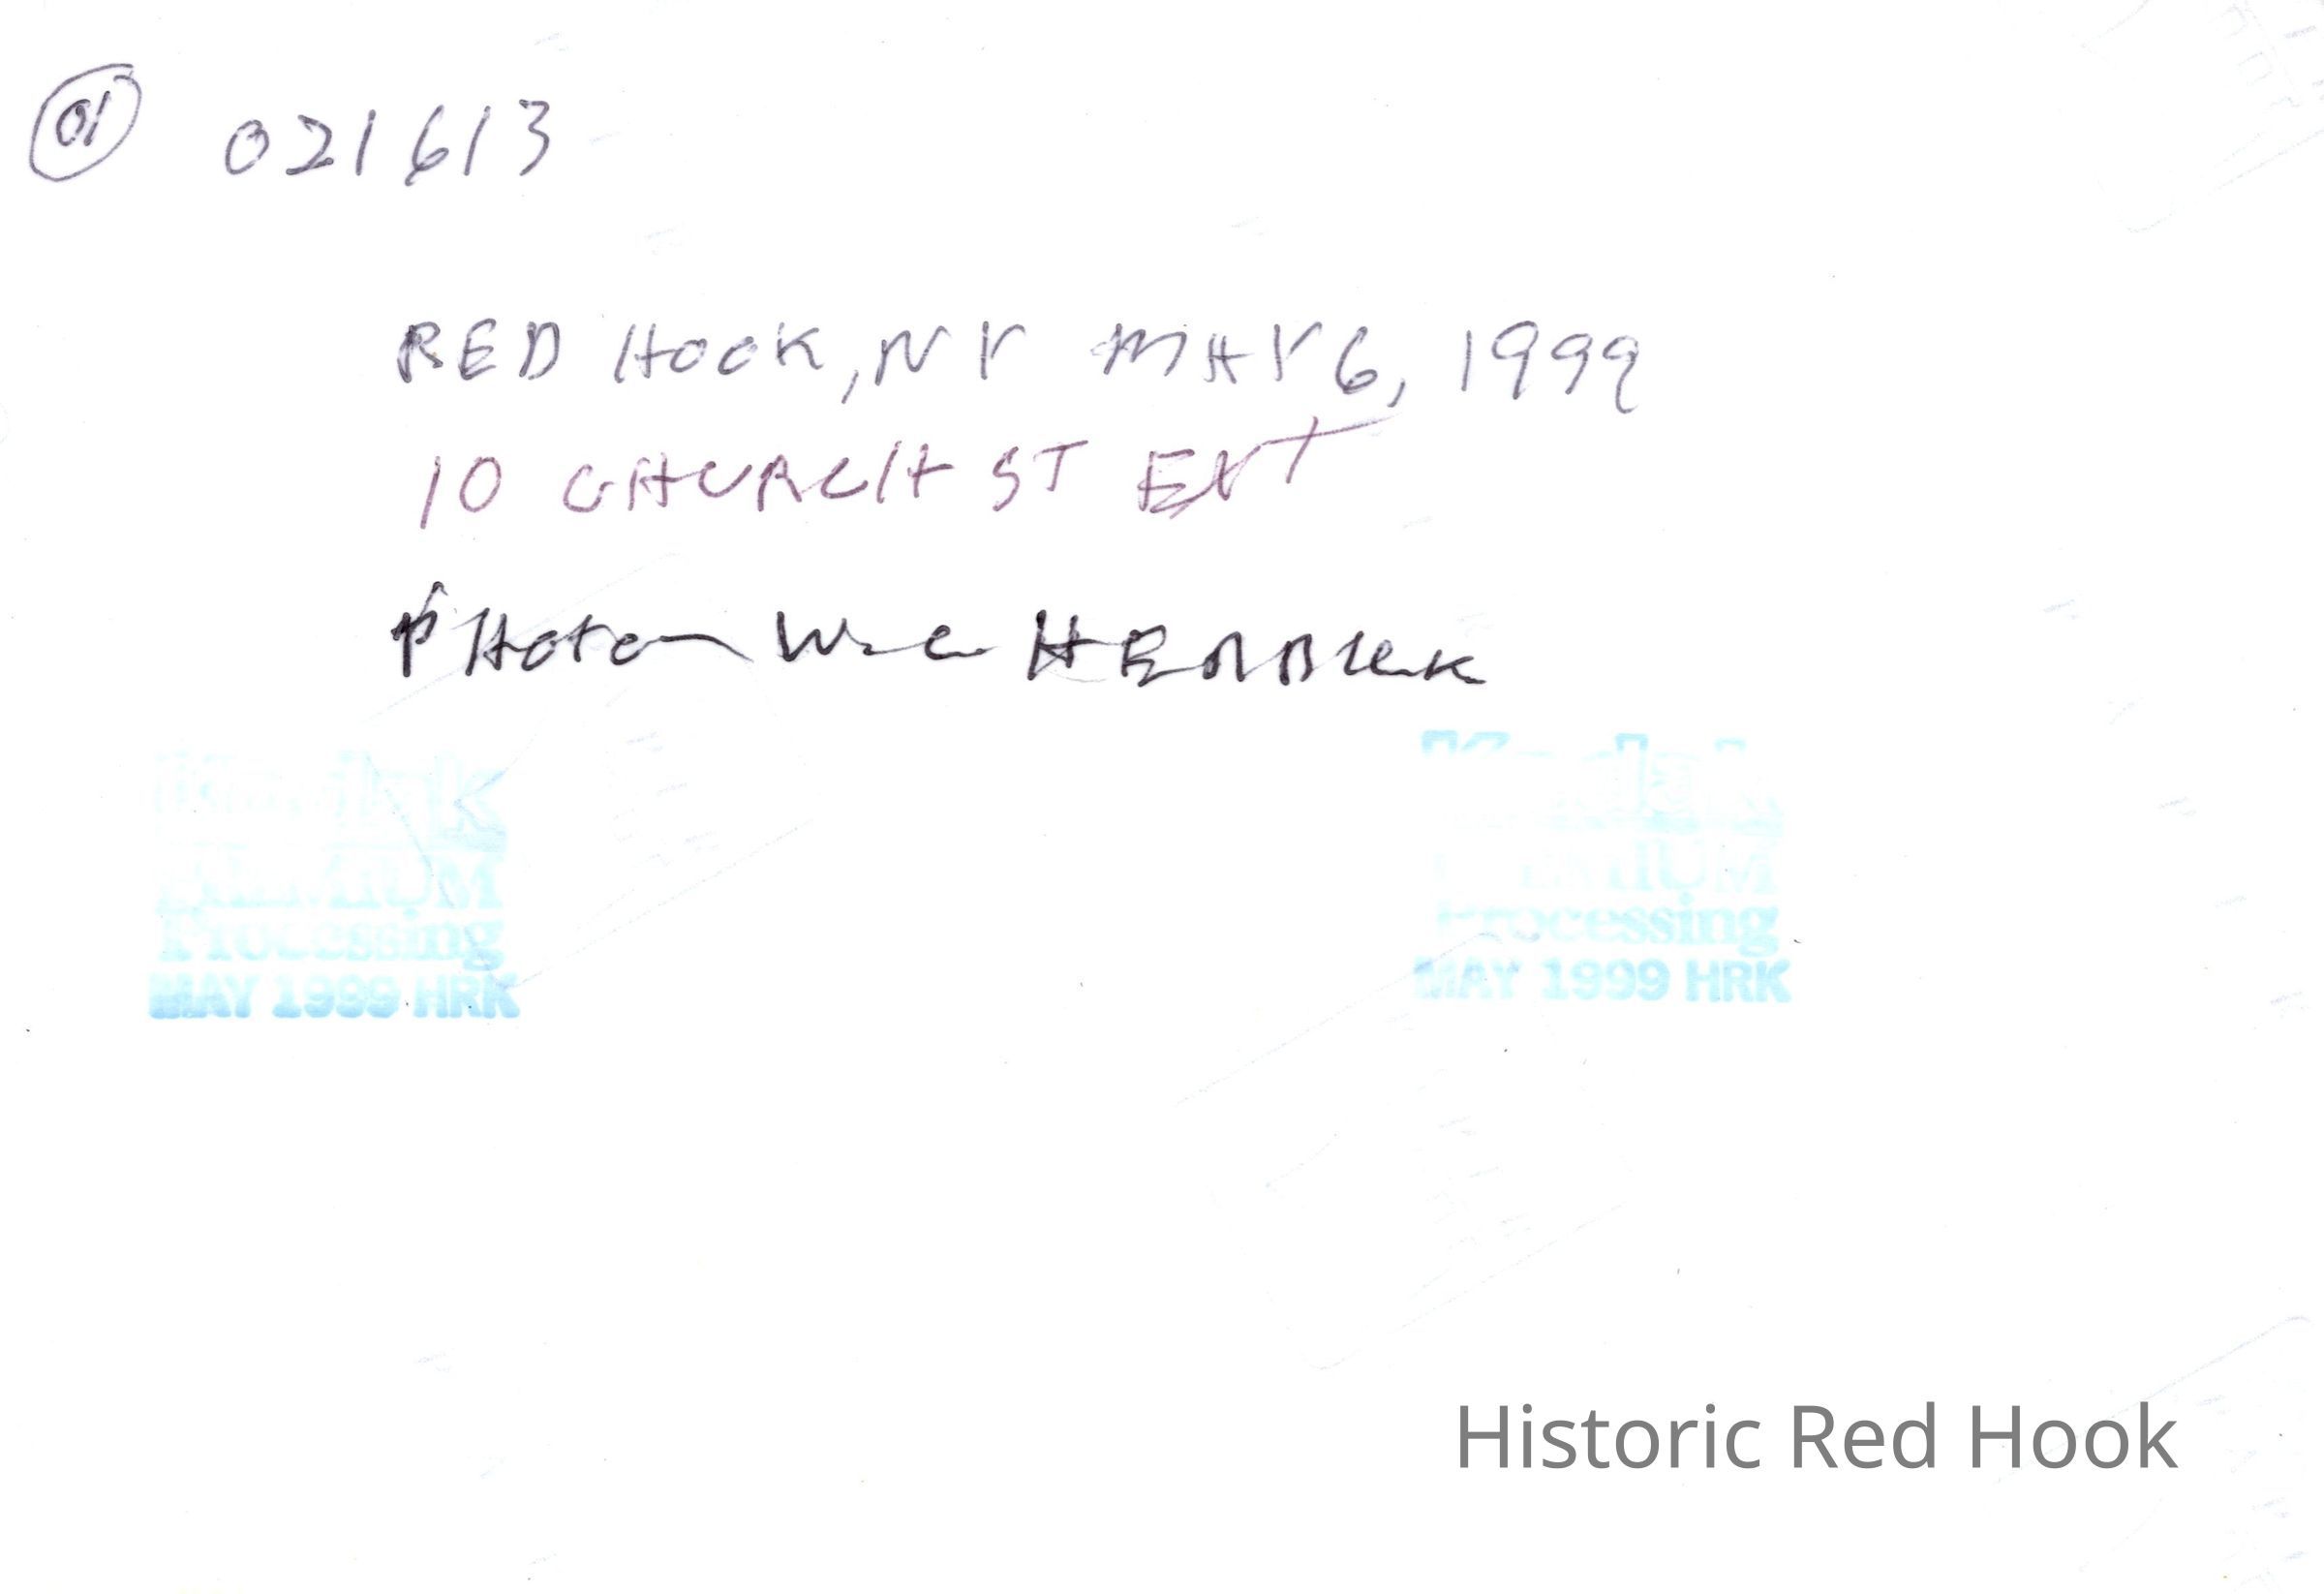 01 021613
RED HOOK, NY MAY 6, 1999
10 CHURCH ST EXT
PHOTO
Kodak
PREMIUM
Processing
MAY 1999 HRK
Kodak
PREMIUM
Processing
MAY 1999 HRK
Historic Red Hook